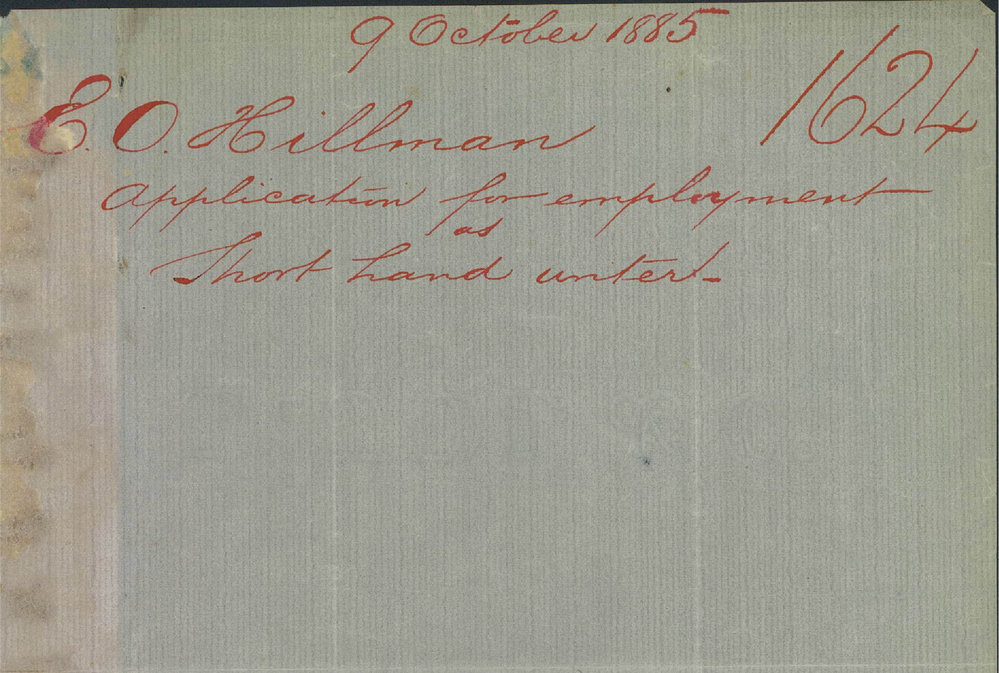 9 October 1885
1624
E. O. Hillman
Application for employment
as
Short hand writer.